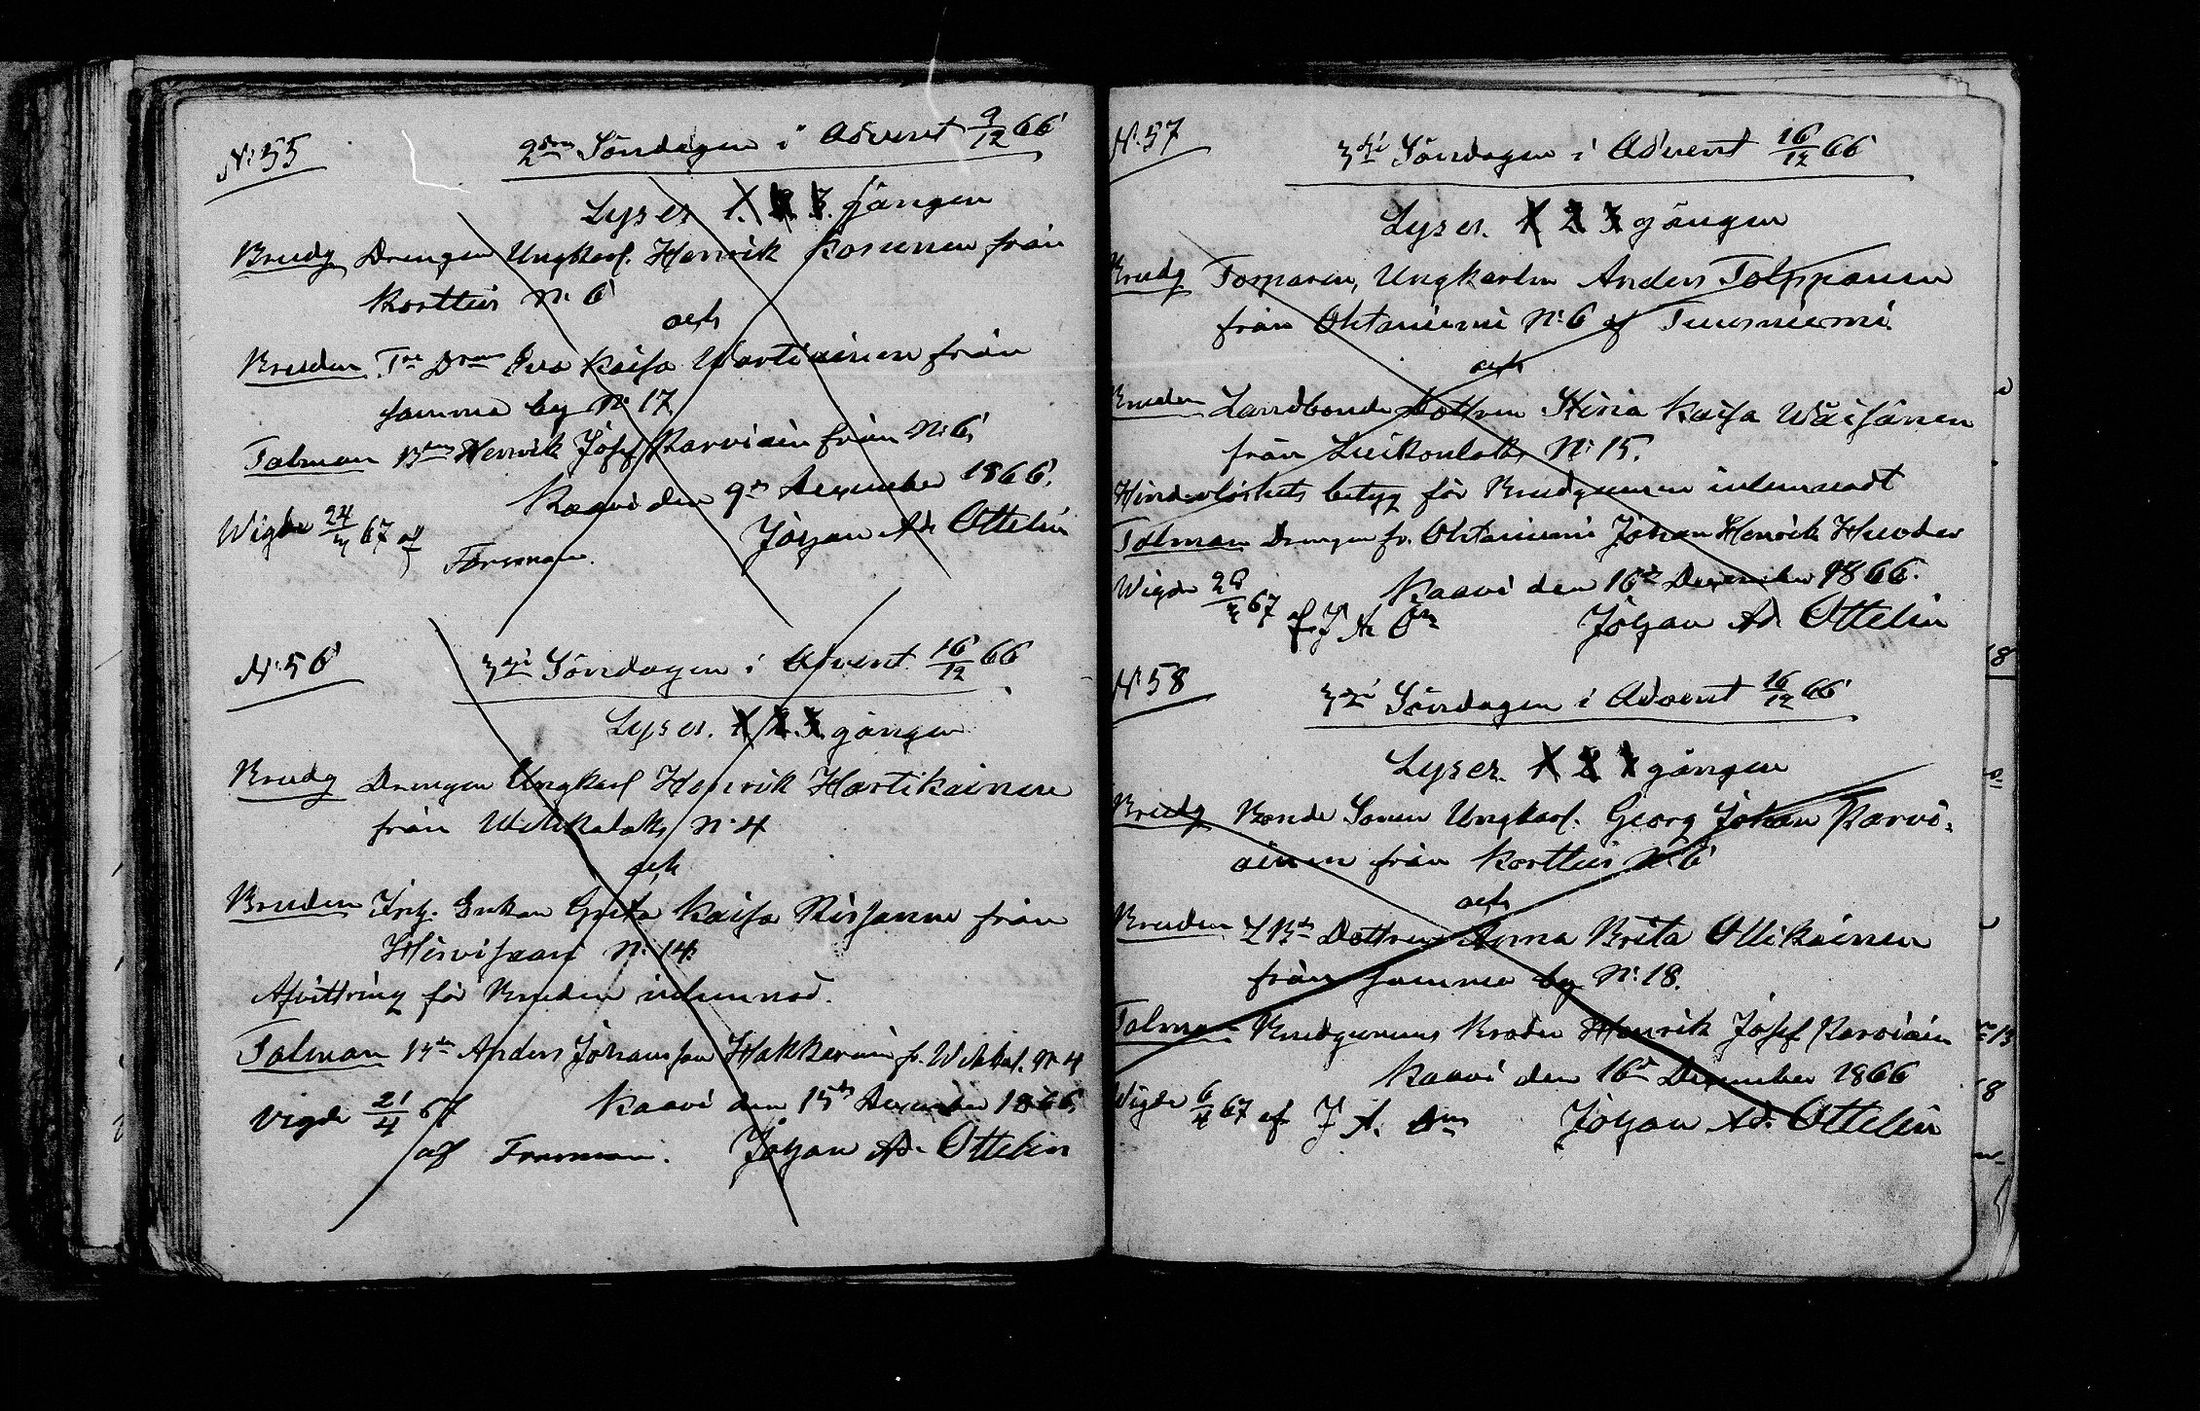 N:55
2dra Söndagen i Advent 9/12 66
Lyses 1. 2. 3. gången
Brudg Drengen Ungkarl. Henrik Kosunen från
Kortteis N: 6
och
Bruden Eva Kaisa Wartiainen från
samma by N: 17
Talman Henrik Josef Parviain från N: 6
Kaavi den 9de December 1866.
Wigde 24/3 67 af
Forsman.
Johan Ad. Ottelin
N:56
3dje Söndagen i Advent 16/12 66
Lyses. 1 2. 3. gången
Brudg Drengen Ungkarl Henrik Hartikainen
från Wehkalaks N: 4
och
Bruden Enkan Greta Kaisa Rissanen från
Hirvisaari N: 14.
Afvittring för Bruden inlemnad.
Talman Anders Johansson Hakkarain fr. Wehkal. N: 4
Vigde 21/4 67
Kaavi den 15de December 1866.
af Forsman.
Johan Ad. Ottelin
N:57
3dje Söndagen i Advent 16/12 66
Lyses. 1 2 3 gången
Brudg Torparen, Ungkarlen Anders Tolppanen
från Ohtaniemi N: 6 af Tuusniemi
och
Bruden Landbonde Dottren Stina Kaisa Wäisänen
från Luikonlaks N: 15.
Hinderlöshets betyg för Brudgummen inlemnadt
Talman Drengen fr. Ohtaniemi Johan Henrik
Wigde 67 af J A On
Kaavi den 16de December 1866.
Johan Ad. Ottelin
N:58
3dje Söndagen i Advent 16/12 66
Lyses. 1 2 3 gången
Brudg Bonde Sonen Ungkarl. Georg Johan Parvi-
ainen från Kortteis N: 6
och
Bruden Dottren Anna Brita Ollikainen
från samma by N: 18.
Talman Brudgummens Broder Henrik Josef Parviain
Kaavi den 16de December 1866
Wigde 6/4 67 af J A. On
Johan Ad. Ottelin